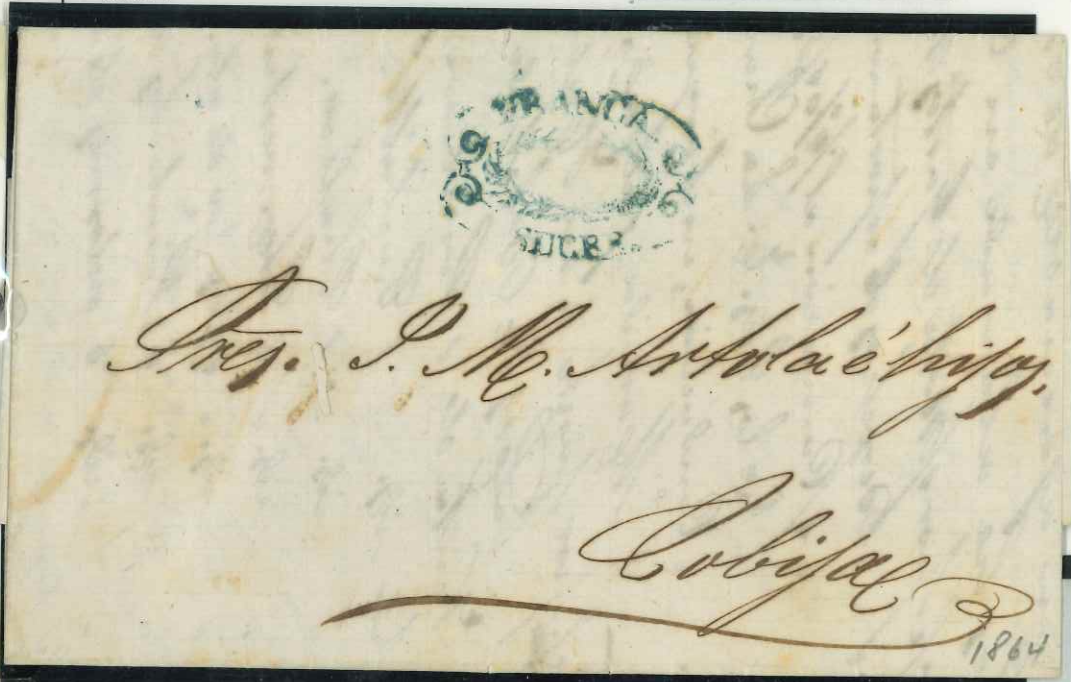 FRANCA
SUCRE.
Sres. J. M. Artola é hijos.
Cobija
1864